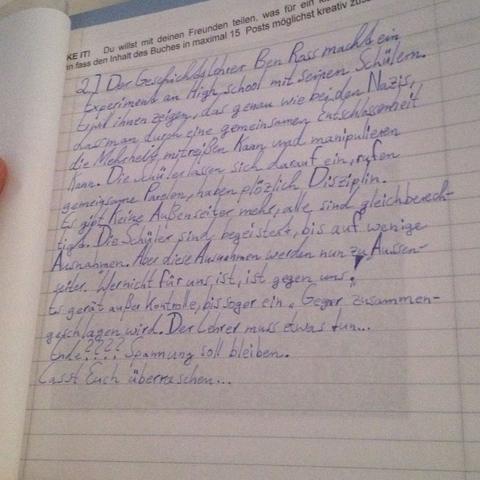 KE IT! Du willst mit deinen Freunden teilen, was für ein
n fass den Inhalt des Buches in maximal 15 Posts möglichst kreativ zus
2.) Der Geschichdslehrer Ben Ross macht ein
Experiment an High school mit seinen Schülern.
Er will ihnen zeigen, das genau wie bei den Nazis,
dass man durch eine gemeinsamen Entschlossenheit
die Mehrheit mitreißen Kann und manipulieren
Kann. Die Schüler lassen sich darauf ein, rufen
gemeinsame Parolen, haben plözlich Disziplin.
Es gibt Keine Außenseiter mehr, alle sind gleichberech-
tigt. Die Schüler sind begeistert, bis auf wenige
Ausnahmen. Aber diese Ausnahmen werden nun zu Aussen-
seiter. Wer nicht für uns ist, ist gegen uns!
Es gerät außer Kontrolle, bis sogar ein „ Gegner zusammen-
geschlagen wird. Der Lehrer muss etwas tun...
Ende???? Spannung soll bleiben.
Lasst Euch überraschen...